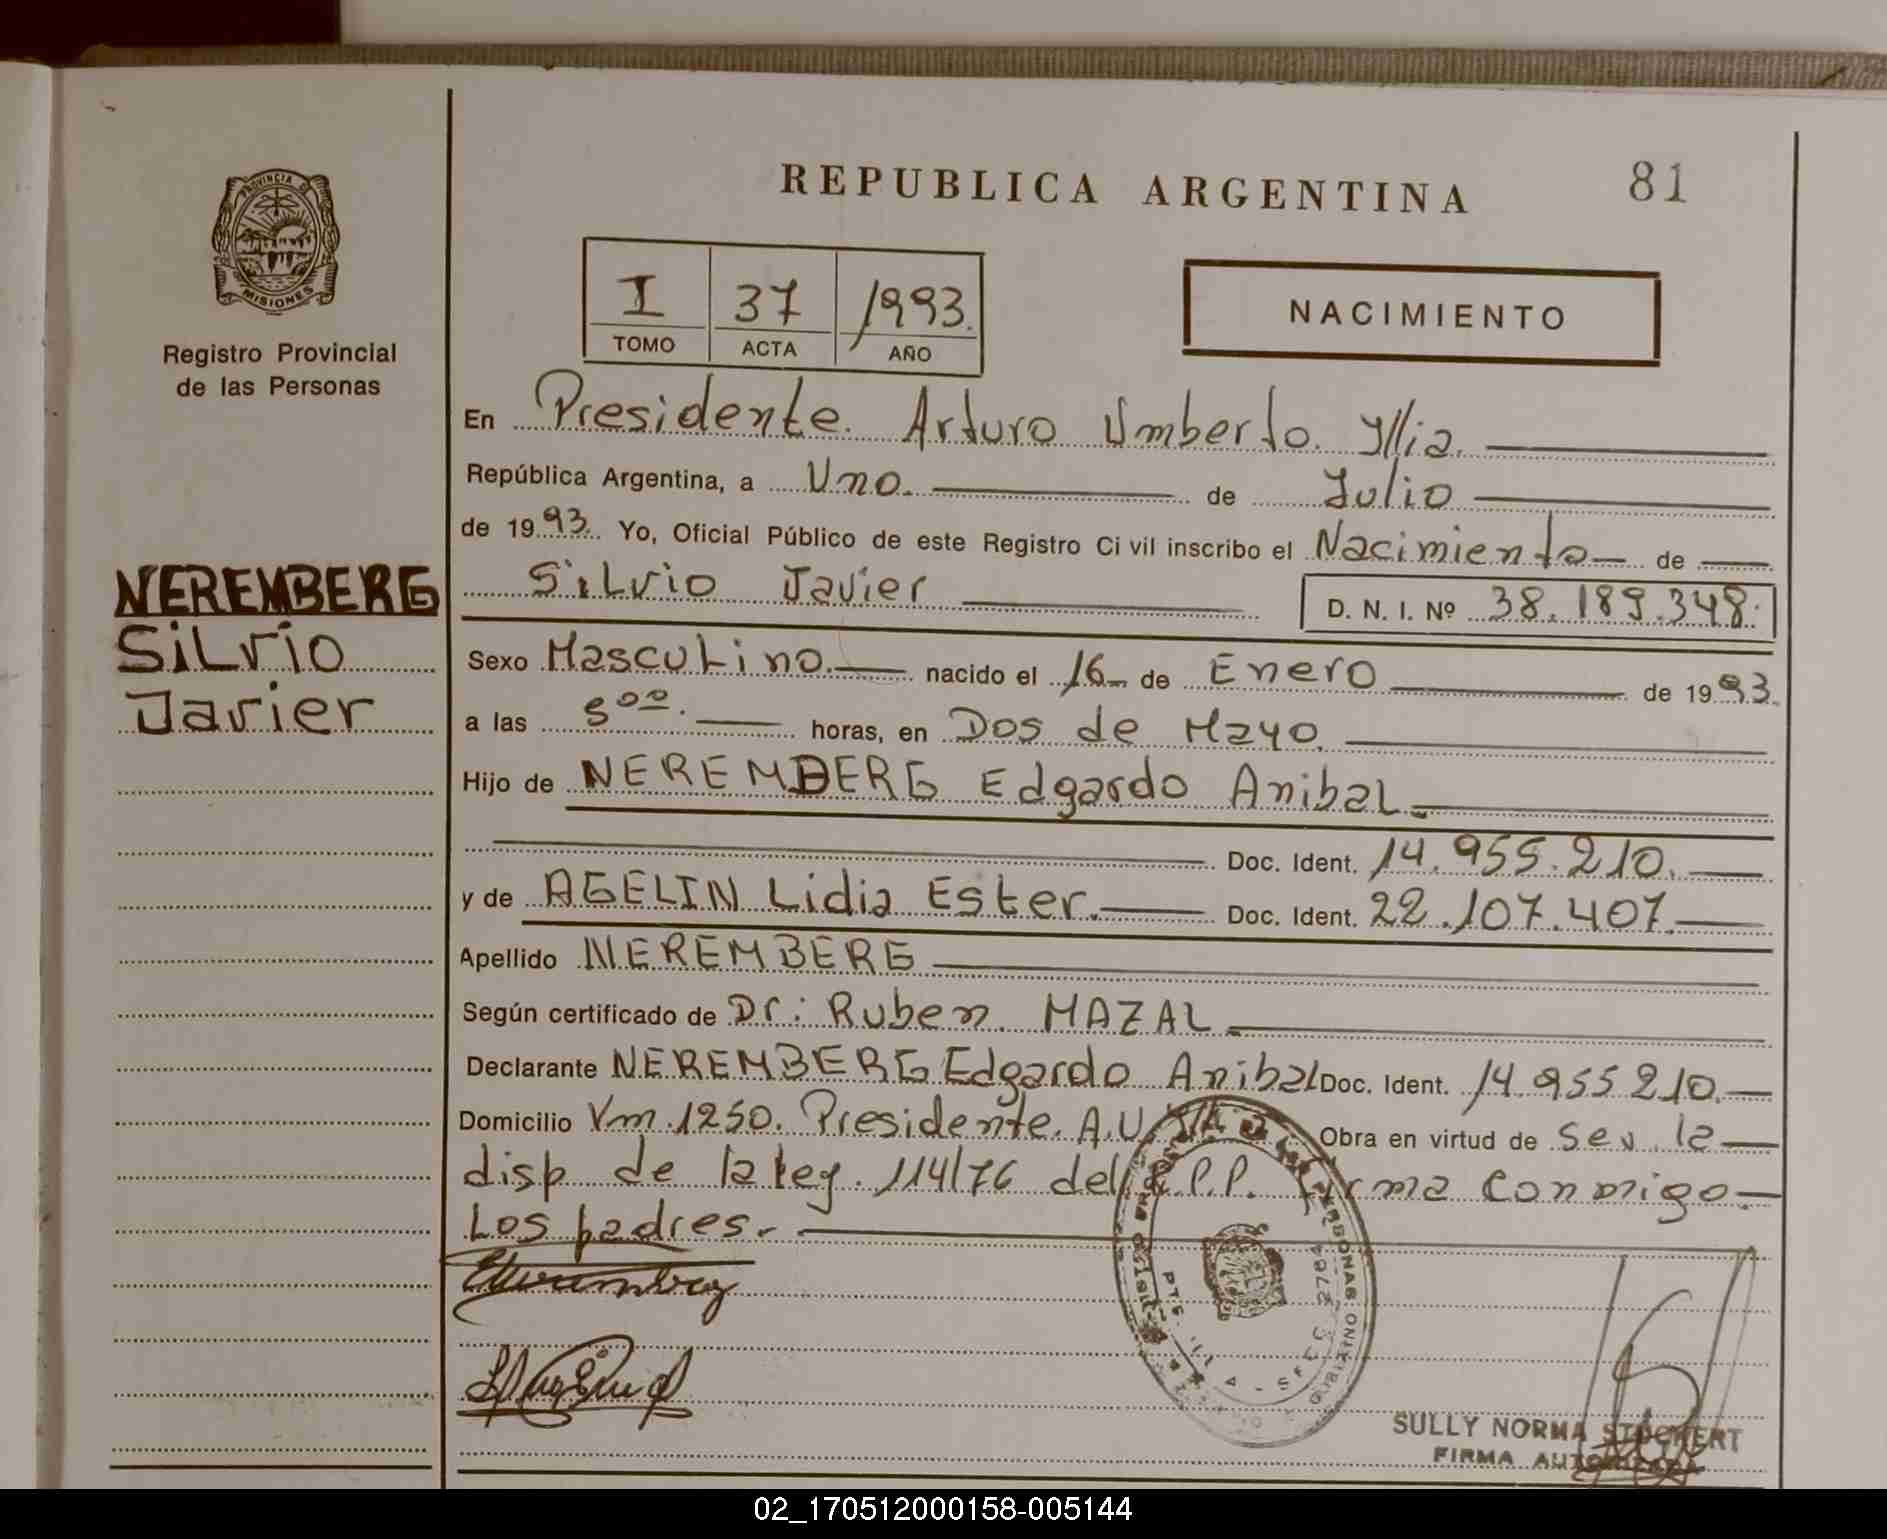 REPUBLICA ARGENTINA
81
PROVINCIA DE
MISIONES
Registro Provincial
de las Personas
I 37 1993.
TOMO ACTA AÑO
NACIMIENTO
En Presidente Arturo Umberto Yllia.
República Argentina, a Uno. de Julio
de 1993. Yo, Oficial Público de este Registro Civil inscribo el Nacimiento de
Silvio Javier D. N. I. Nº 38.189.348.
NEREMBERG
Silvio
Javier
Sexo Masculino. nacido el 16 de Enero de 1993.
a las 8 00. horas, en Dos de Mayo.
Hijo de NEREMBERG Edgardo Anibal.
Doc. Ident. 14.955.210.
y de AGELIN Lidia Ester. Doc. Ident. 22.107.407.
Apellido NEREMBERG
Según certificado de Dr: Ruben MAZAL
Declarante NEREMBERG Edgardo Anibal Doc. Ident. 14.955210.
Domicilio Vm. 1250. Presidente. A.U. Obra en virtud de Sev. la
disp de la ley. 114/76 del R.P.P. Firma Conmigo
Los padres.
SULLY NORMA STOCKERT
FIRMA AUTORIZADA
02_170512000158-005144